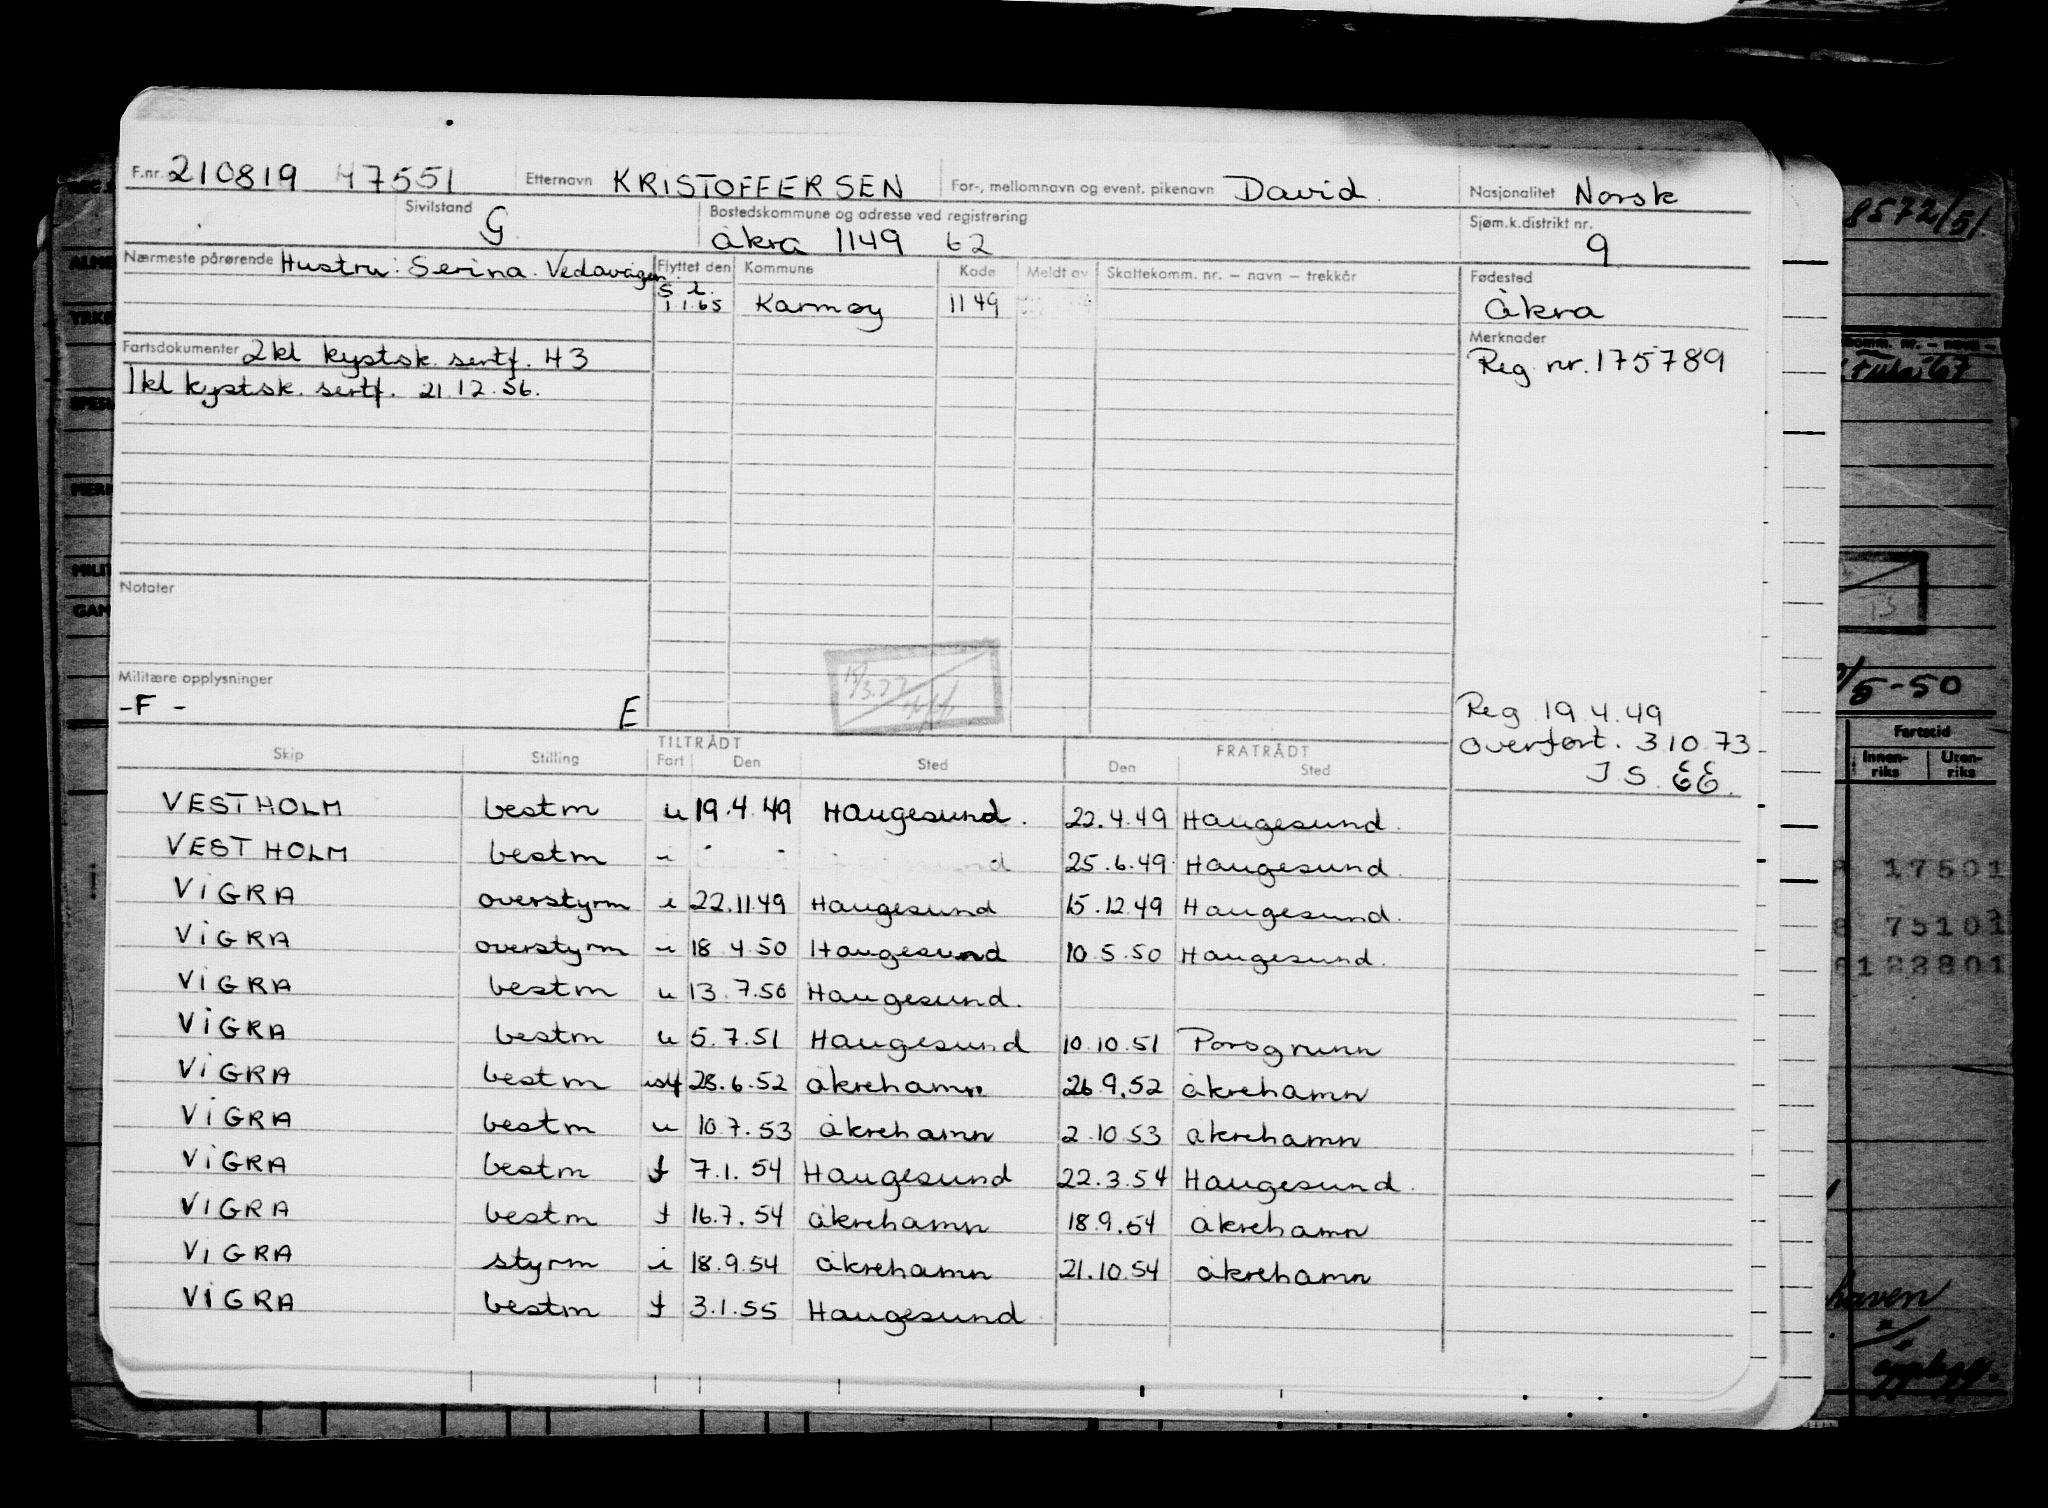 F.nr. 210819 47551 Etternavn KRISTOFFERSEN For-, mellomnavn og event. pikenavn David. Nasjonalitet Norsk
Sivilstand G Bostedskommune og adresse ved registrering Sjøm.k.distrikt nr.
åkra 1149 62 9
Nærmeste pårørende Hustru: Serina. Vedavågen. Flyttet den Kommune Kode Meldt av Skattekomm. nr. – navn – trekkår Fødested
1.1.65 Karmøy 1149 Åkra
Fartsdokumenter 2kl kystsk. sertf. 43 Merknader
1kl kystsk. sertf. 21.12.56. Reg nr. 175789
Notater
Militære opplysninger
-F - E
Reg 19.4.49
overført. 3.10.73
TILTRÅDT FRATRÅDT
Skip Stilling Fart Den Sted Den Sted
VESTHOLM bestm u 19.4.49 Haugesund. 22.4.49 Haugesund.
VESTHOLM bestm i 25.6.49 Haugesund
VIGRA overstyrm i 22.11.49 Haugesund 15.12.49 Haugesund.
VIGRA overstyrm i 18.4.50 Haugesund 10.5.50 Haugesund.
VIGRA bestm u 13.7.50 Haugesund.
VIGRA bestm u 5.7.51 Haugesund 10.10.51 Porsgrunn
VIGRA bestm islf 28.6.52 åkrehamn 26.9.52 åkrehamn
VIGRA bestm u 10.7.53 åkrehamn 2.10.53 åkrehamn
VIGRA bestm f 7.1.54 Haugesund 22.3.54 Haugesund.
VIGRA bestm f 16.7.54 åkrehamn 18.9.54 åkrehamn
VIGRA styrm i 18.9.54 åkrehamn 21.10.54 åkrehamn
VIGRA bestm f 3.1.55 Haugesund
8572/51
5-50
Fartstid
Innen-
riks
Uten-
riks
17501
75107
123801